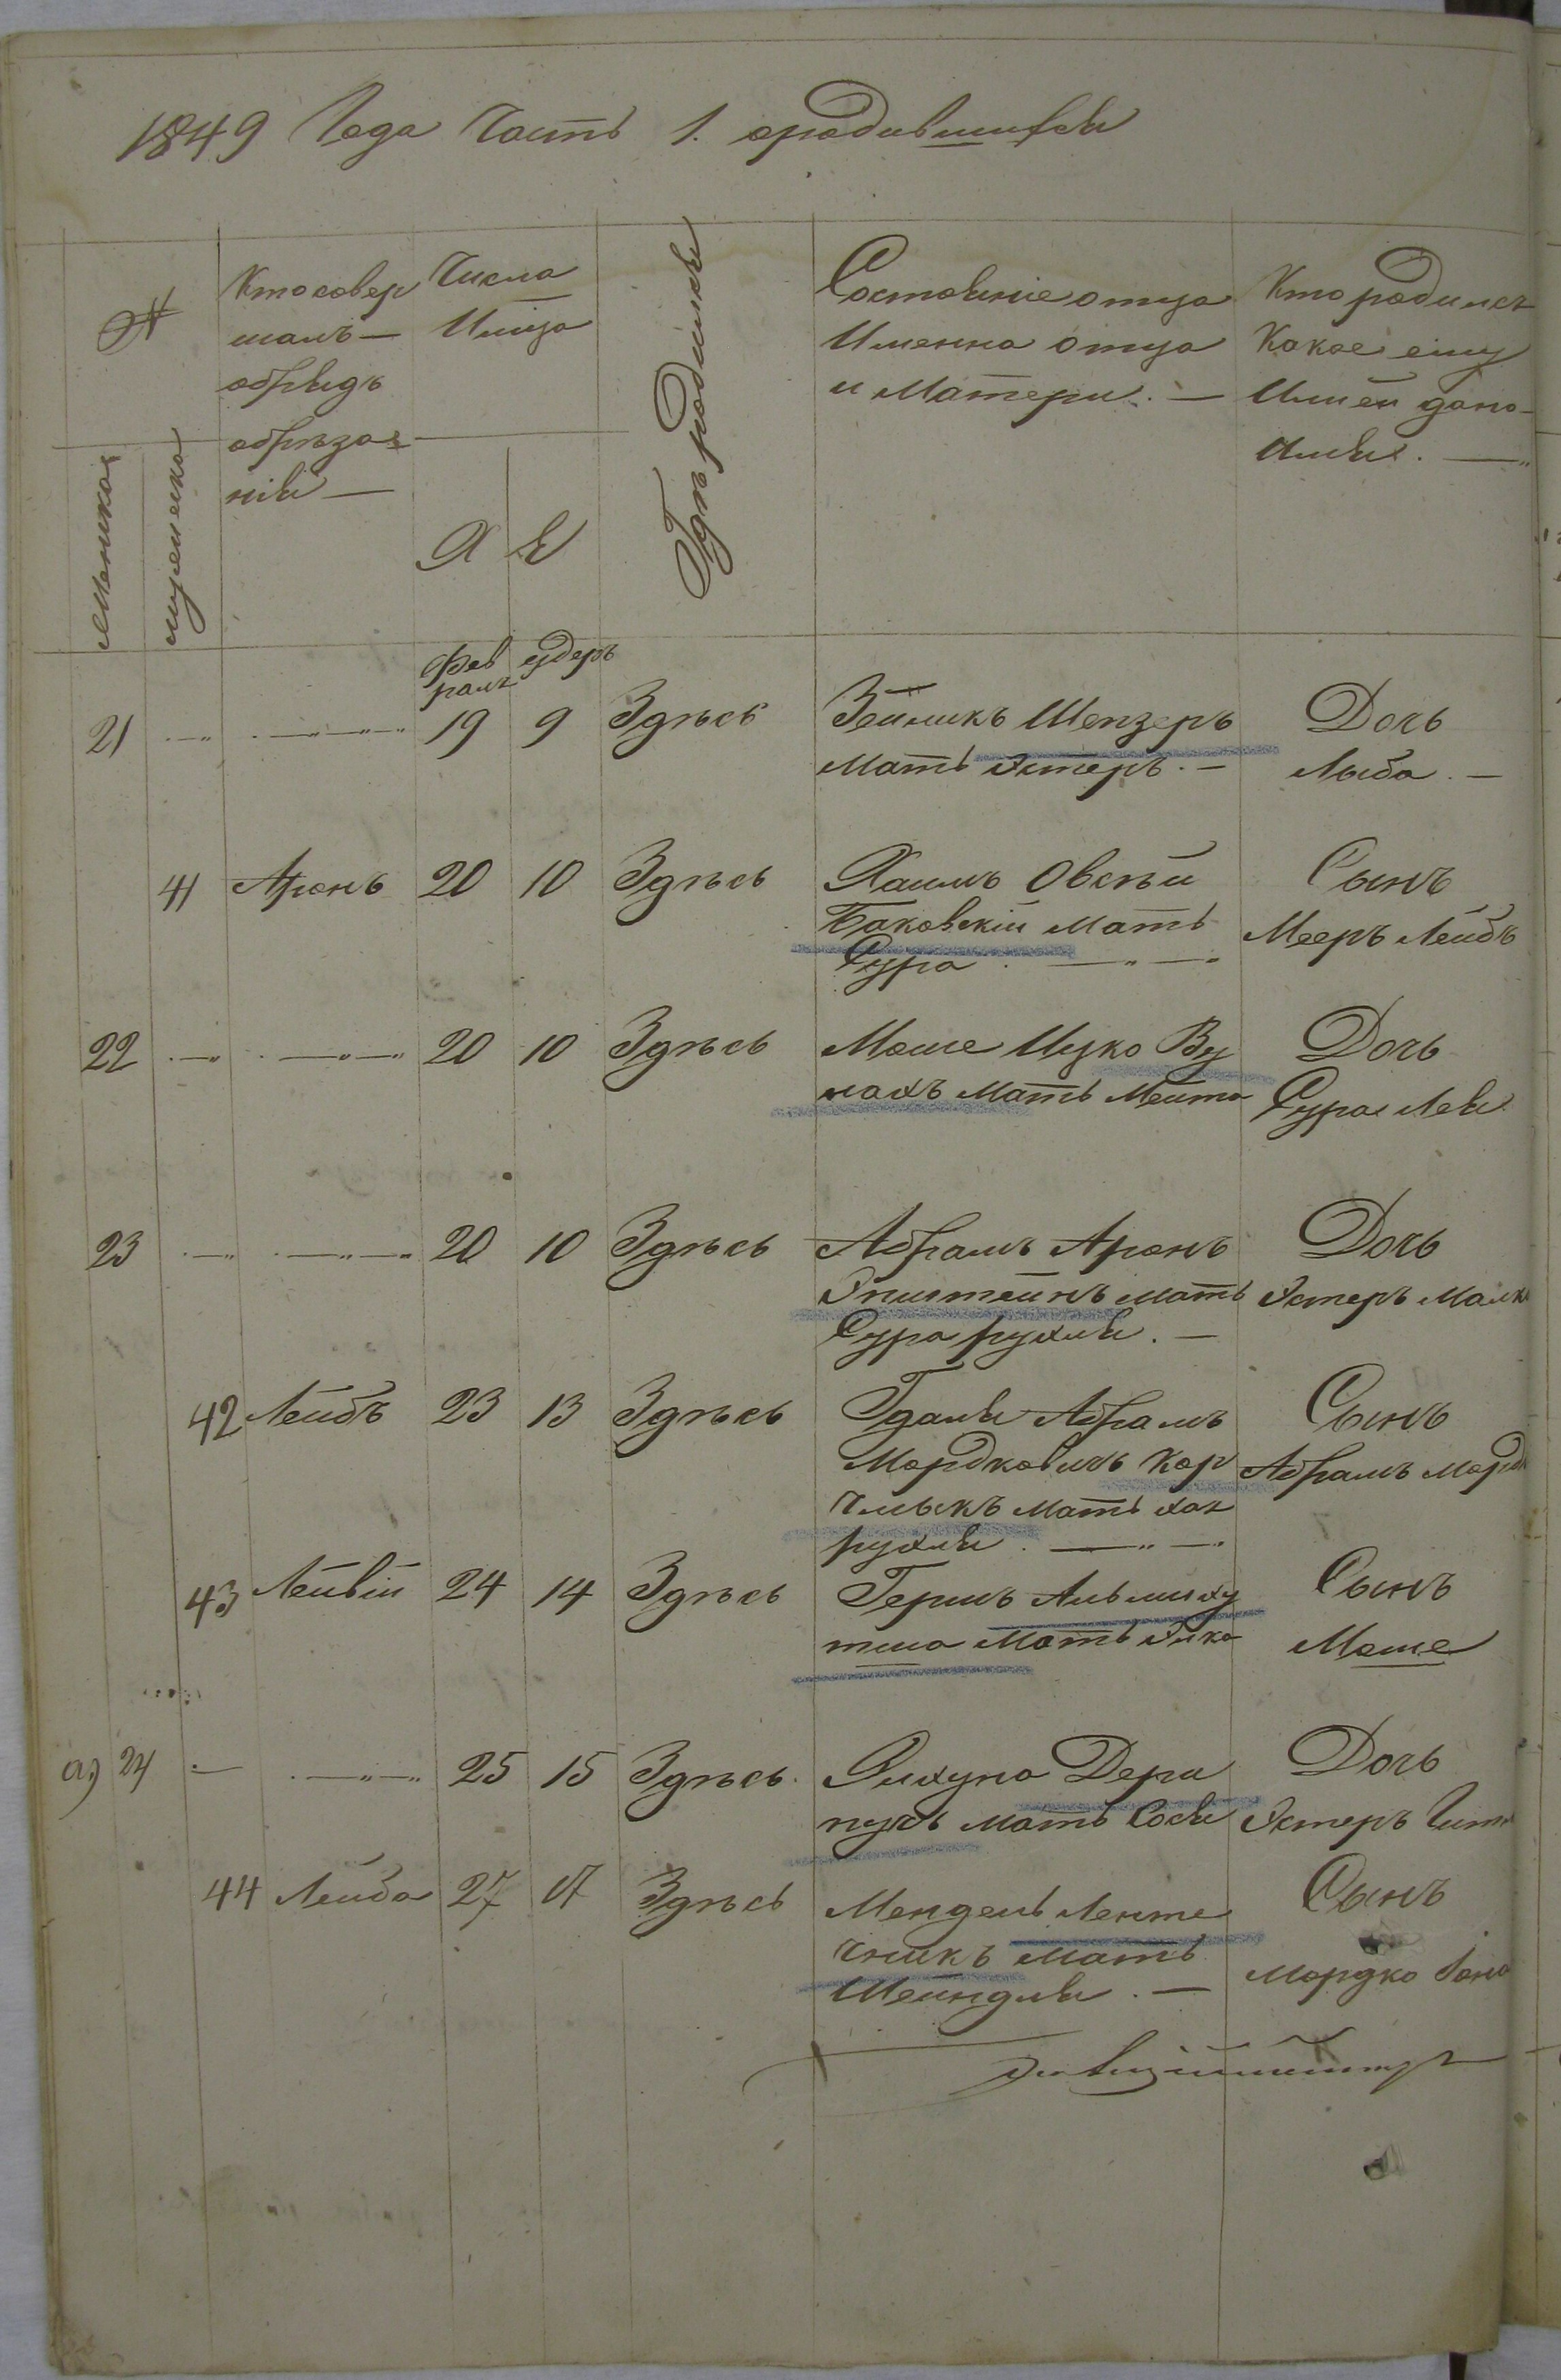 1849 Года Часть 1. ородившихся
№
Женская
мужеска
Кто совер
шалъ —
обрядъ
обрѣза
нія —
Числа
Х Е
Гдѣ родился
Состояние отца
Именна отца
и Матери. —
Кто родился
Какое ему
дано
Фев
раль
19 9 Здѣсь
21
Зеймикъ Шепзеръ
Мать Эстеръ. —
Дочь
Лыба. —
41 Аронъ 20 10 Здѣсь
Хаимъ Овсѣй
Баковскій Мать
Сура
Сынъ
Мееръ Лейбъ
22 20 10 Здѣсь
Моше Ицко Ву
Мать Мейта
Дочь
Сура Лея
23 20 10 Здѣсь
Абрамъ Аронъ
Эпштейнъ Мать
Сура рухля. —
Дочь
Эстеръ Малк
42 Лейбъ 23 13 Здѣсь
Гдаля Абрамъ
Мордковичъ Кор
Мать хая
рухля.
Сынъ
Абрамъ Морд
43 Лейвій 24 14 Здѣсь
Гершъ
Мать Рика
Сынъ
Моше
а) 24 25 15 Здѣсь
Элхуна Дера
пухъ Мать Сося
Дочь
Эстеръ Гит
44 Лейба 27 17 Здѣсь
Мендель Ленте
чникъ Мать
Шейндля. —
Сынъ
Мордко